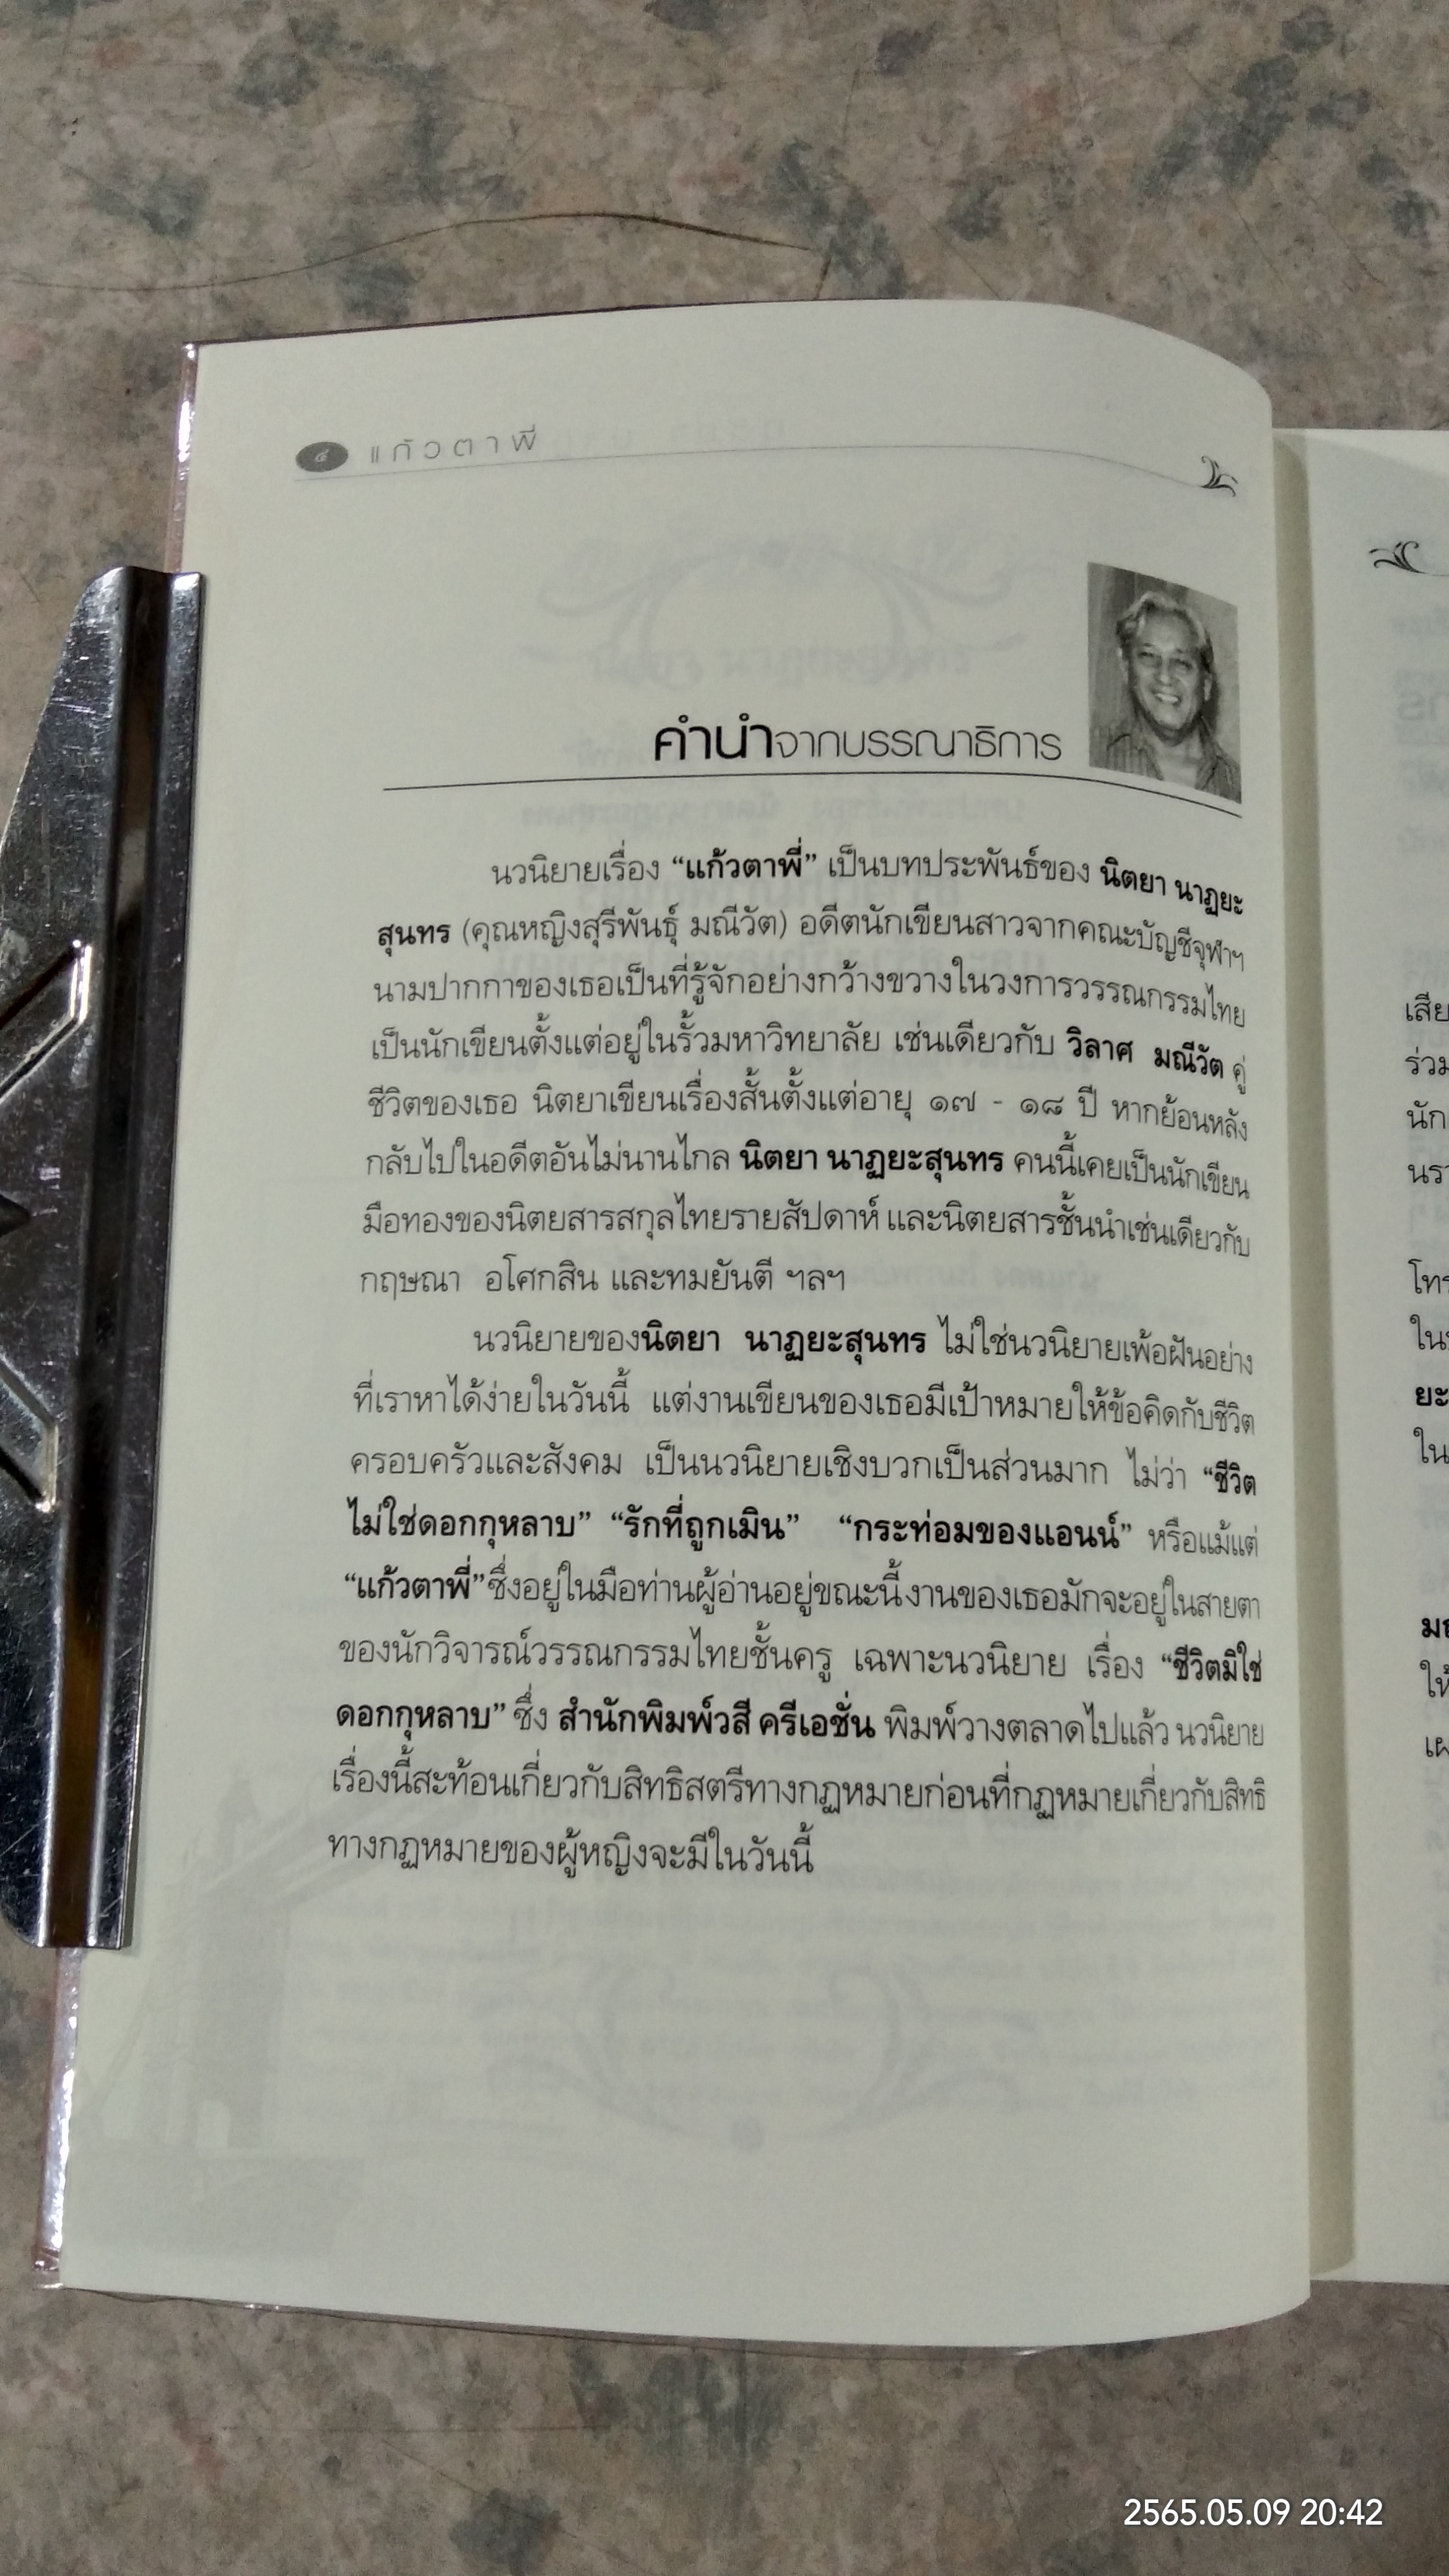 ๔ แก้วตาพี่
คำนำจากบรรณาธิการ
นวนิยายเรื่อง “แก้วตาพี่” เป็นบทประพันธ์ของ นิตยา นาฏยะ
สุนทร (คุณหญิงสุรีพันธุ์ มณีวัต) อดีตนักเขียนสาวจากคณะบัญชีจุฬาฯ
นามปากกาของเธอเป็นที่รู้จักอย่างกว้างขวางในวงการวรรณกรรมไทย
เป็นนักเขียนตั้งแต่อยู่ในรั้วมหาวิทยาลัย เช่นเดียวกับ วิลาศ มณีวัต คู่
ชีวิตของเธอ นิตยาเขียนเรื่องสั้นตั้งแต่อายุ ๑๗ - ๑๘ ปี หากย้อนหลัง
กลับไปในอดีตอันไม่นานไกล นิตยา นาฏยะสุนทร คนนี้เคยเป็นนักเขียน
มือทองของนิตยสารสกุลไทยรายสัปดาห์ และนิตยสารชั้นนำเช่นเดียวกับ
กฤษณา อโศกสิน และทมยันตี ฯลฯ
นวนิยายของนิตยา นาฏยะสุนทร ไม่ใช่นวนิยายเพ้อฝันอย่าง
ที่เราหาได้ง่ายในวันนี้ แต่งานเขียนของเธอมีเป้าหมายให้ข้อคิดกับชีวิต
ครอบครัวและสังคม เป็นนวนิยายเชิงบวกเป็นส่วนมาก ไม่ว่า “ชีวิต
ไม่ใช่ดอกกุหลาบ” “รักที่ถูกเมิน” “กระท่อมของแอนน์” หรือแม้แต่
“แก้วตาพี่” ซึ่งอยู่ในมือท่านผู้อ่านอยู่ขณะนี้ งานของเธอมักจะอยู่ในสายตา
ของนักวิจารณ์วรรณกรรมไทยชั้นครู เฉพาะนวนิยาย เรื่อง “ชีวิตมิใช่
ดอกกุหลาบ” ซึ่ง สำนักพิมพ์วสี ครีเอชั่น พิมพ์วางตลาดไปแล้ว นวนิยาย
เรื่องนี้สะท้อนเกี่ยวกับสิทธิสตรีทางกฎหมายก่อนที่กฎหมายเกี่ยวกับสิทธิ
ทางกฎหมายของผู้หญิงจะมีในวันนี้
เสีย
ร่วม
นัก
ยะ
ใน
2565.05.09 20:42